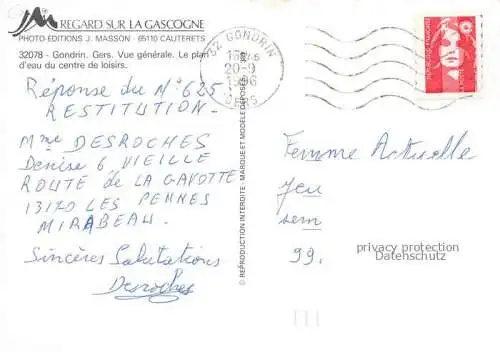 REGARD SUR LA GASCOGNE
PHOTO-EDITIONS J. MASSON - 65110 CAUTERETS
32078 - Gondrin. Gers. Vue générale. Le plan
d'eau du centre de loisirs.
Réponse du N° 625
RESTITUTION -
Mme DESROCHES
Denise 6 VIEILLE
ROUTE de LA GAVOTTE
13170 LES PENNES
MIRABEAU.
Sincères Salutations
Desroches
© REPRODUCTION INTERDITE - MARQUE ET MODELE DEPOSES
32 GONDRIN
20-9
1996
GERS
REPUBLIQUE FRANÇAISE
Femme Actuelle
Jeu
sem
99.
privacy protection
Datenschutz